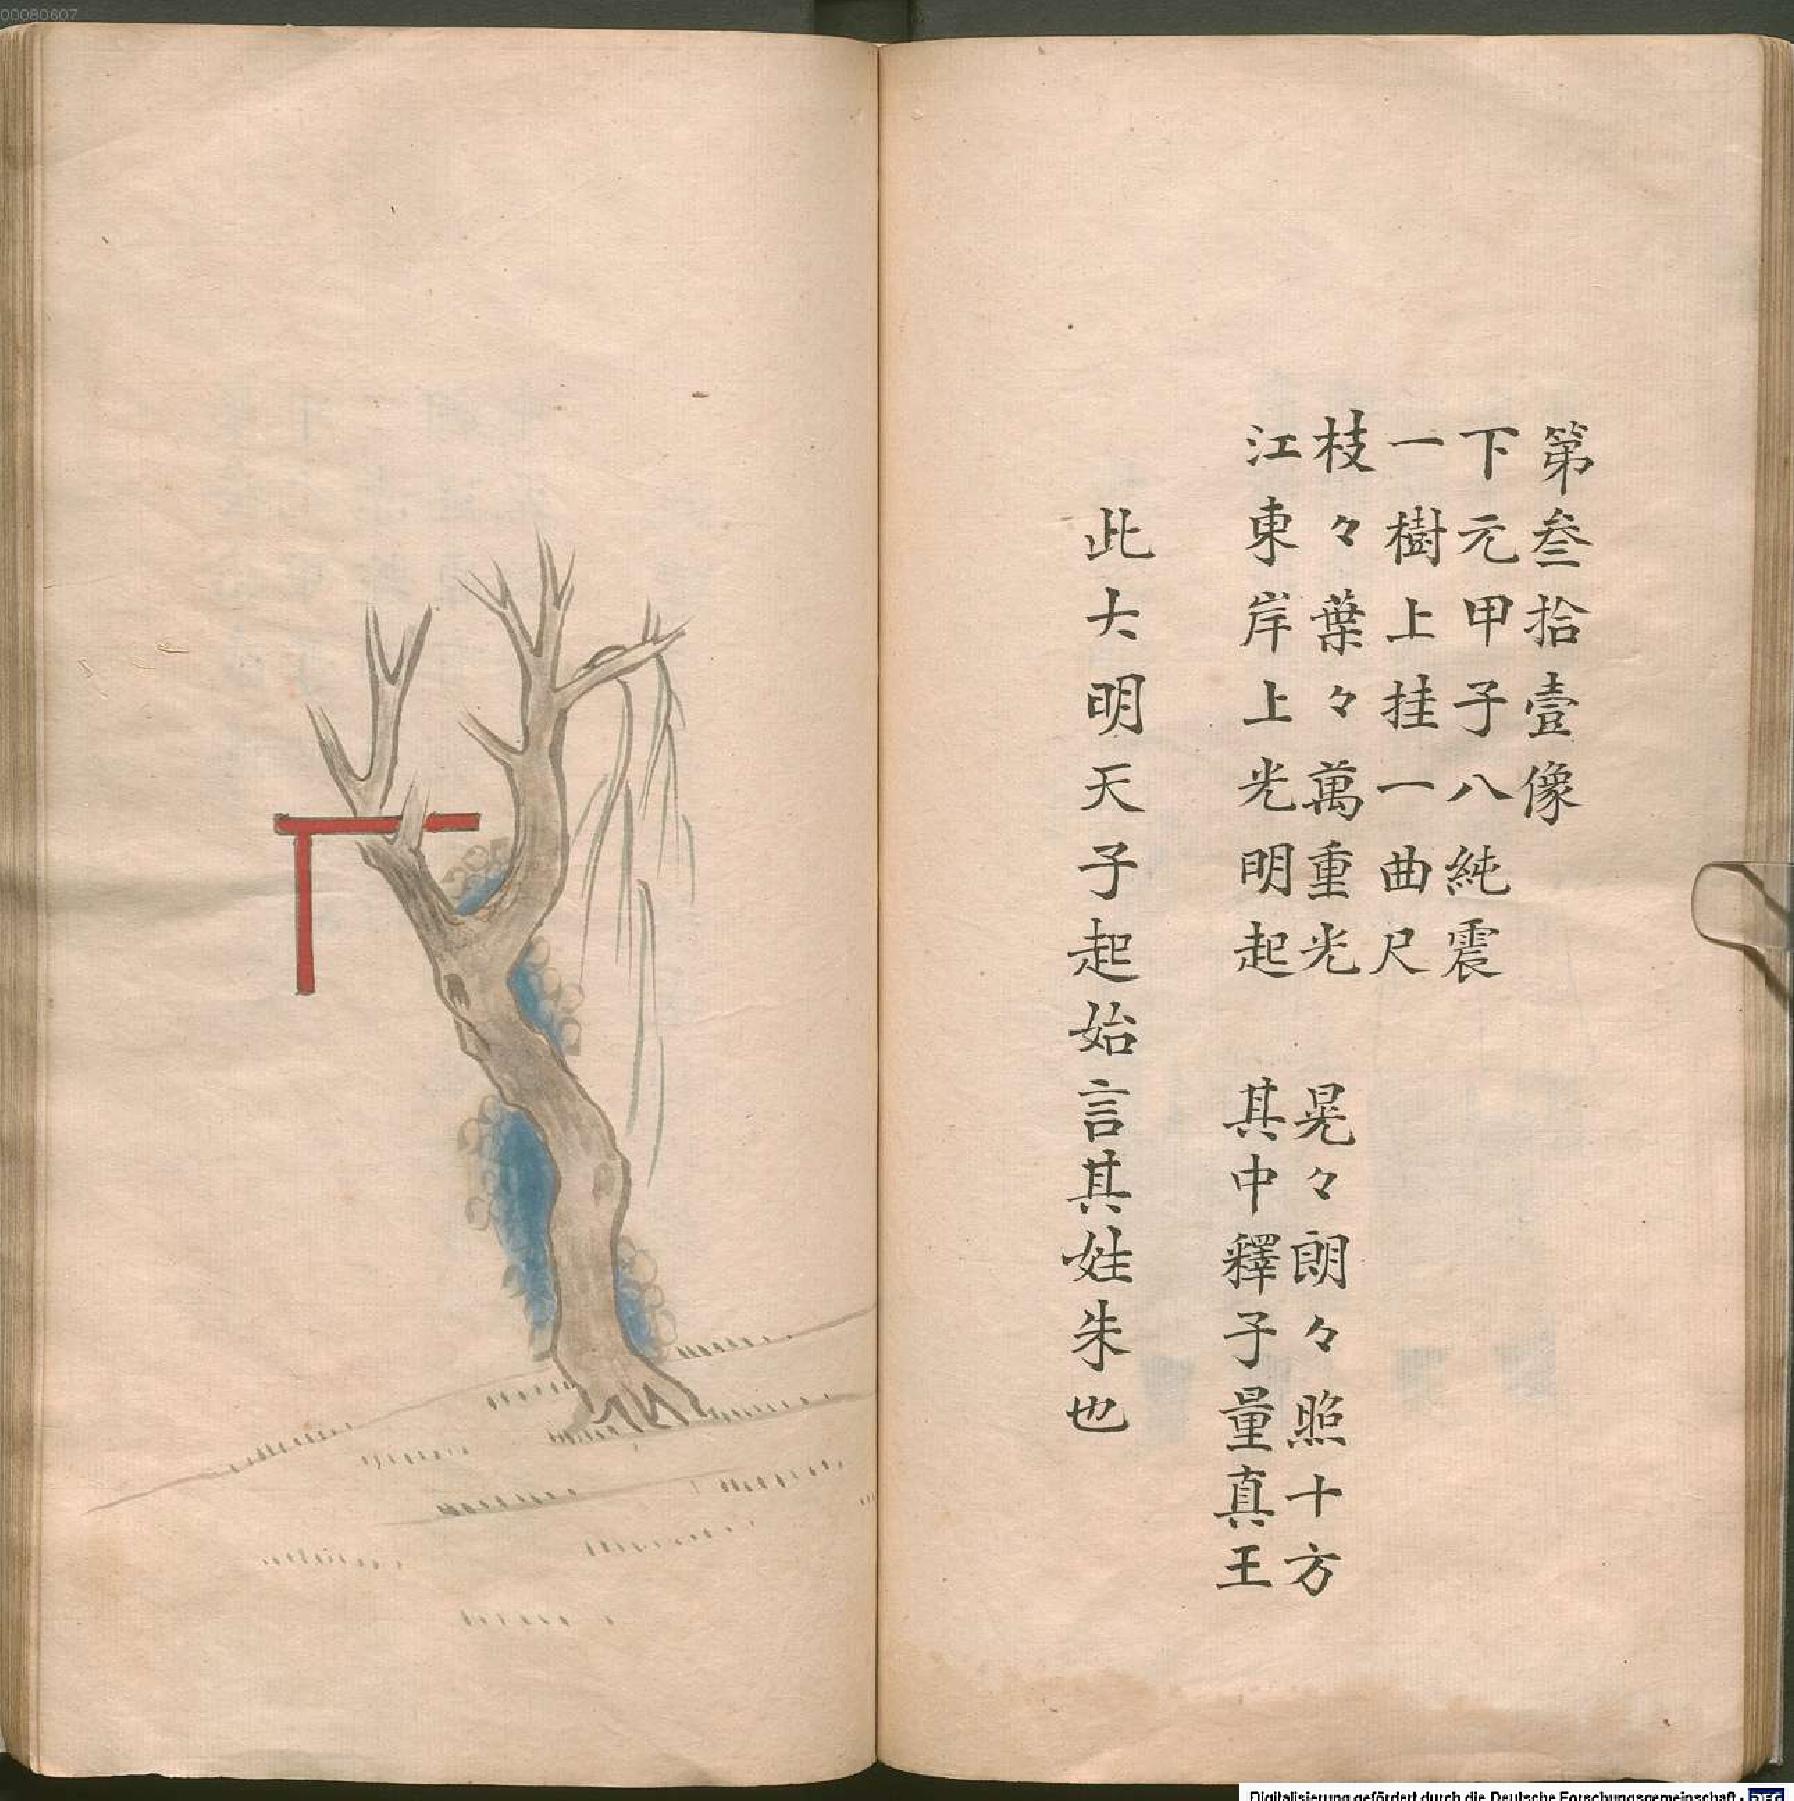 00080607
第叁拾壹像
下元甲子八純震
一樹上挂一曲尺
枝々葉々萬重光 晃々朗々照十方
江東岸上光明起 其中釋子量真王
此大明天子起始言其姓朱也
Digitalisierung gefördert durch die Deutsche Forschungsgemeinschaft - DFG